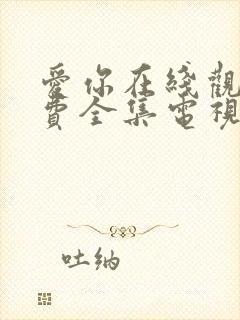 愛你在綫觀
費全集電視
吐納